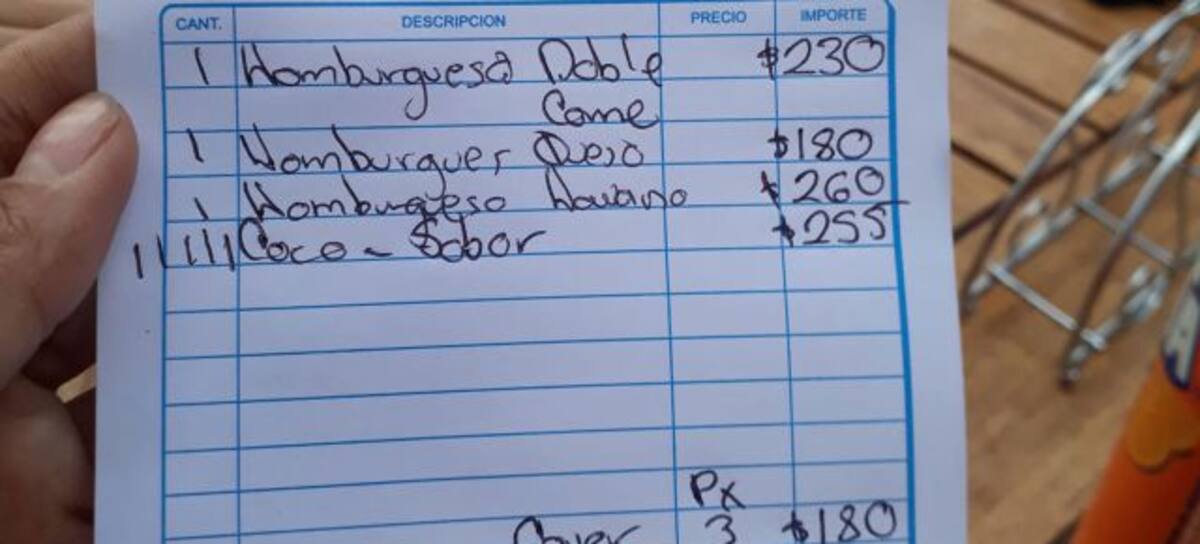 CANT. DESCRIPCION PRECIO IMPORTE
1 Hamburguesa Doble $230
Carne
1 Hamburguer Queso $180
1 Hamburguesa Hawano $260
1 1 1 1 1 Coca - Sabor $255
Px
Cover 3 $180